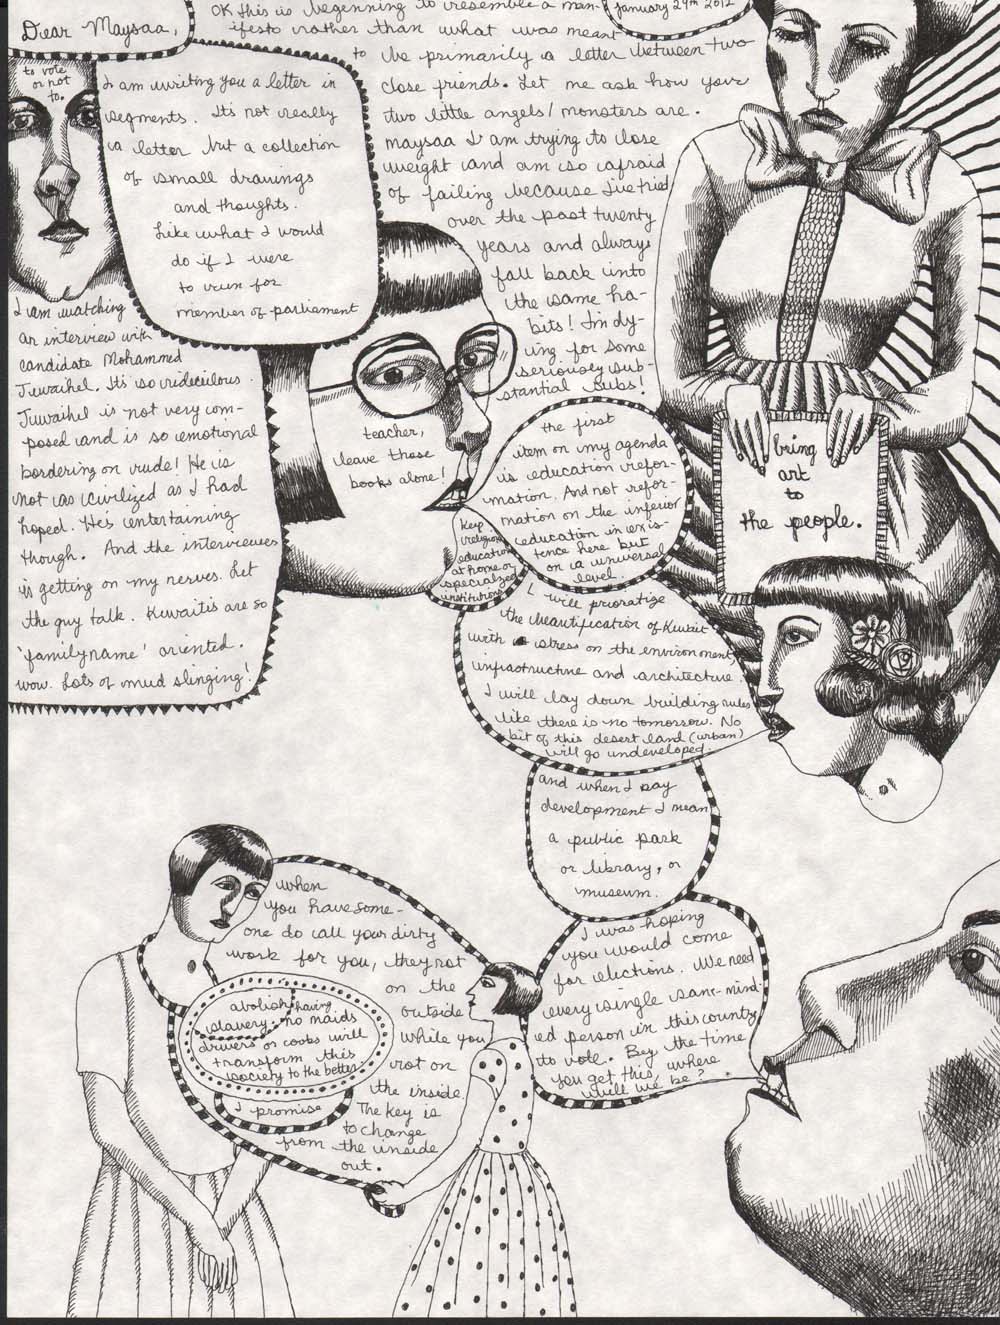 Dear Maysaa,
January 29th 2012
to vote
or not
to.
I am writing you a letter in
segments. Its not really
a letter but a collection
of small drawings
and thoughts.
Like what I would
do if I were
to run for
member of parliament
I am watching
an interview with
candidate Mohammed
Juwaihel. Its so ridiculous.
Juwaihel is not very com-
posed and is so emotional
bordering on rude! He is
not as civilized as I had
hoped. He's entertaining
though. And the interviewer
is getting on my nerves. Let
the guy talk. Kuwaitis are so
'family name' oriented.
wow. Lots of mud slinging!
OK this is beginning to resemble a man-
ifesto rather than what was meant
to be primarily a letter between two
close friends. Let me ask how your
two little angels/monsters are.
maysaa I am trying to lose
weight and am so afraid
of failing because I've tried
over the past twenty
years and always
fall back into
the same ha-
bits! Im dy-
ing for some
seriously sub-
stantial subs!
teacher,
leave those
books alone!
the first
item on my agenda
is education refor-
mation. And not refor-
mation on the inferior
education in exis-
tence here but
on a universal
level.
keep
religious
education
at home or
specialized
institutions
bring
art
to
the people.
I will prioratize
the beautification of Kuwait
with stress on the environment,
infrastructure and architecture.
I will lay down building rules
like there is no tomorrow. No
bit of this desert land (urban)
will go undeveloped.
and when I say
development I mean
a public park
or library, or
museum.
I was hoping
you would come
for elections. We need
every single sane-mind-
ed person in this country
to vote. By the time
you get this, where
will we be?
when
you have some-
one do all your dirty
work for you, they rot
on the
outside
while you
rot on
the inside.
The key is
to change
from the inside
out.
abolish having
slavery. no maids
drivers or cooks will
transform this
society to the better
I promise